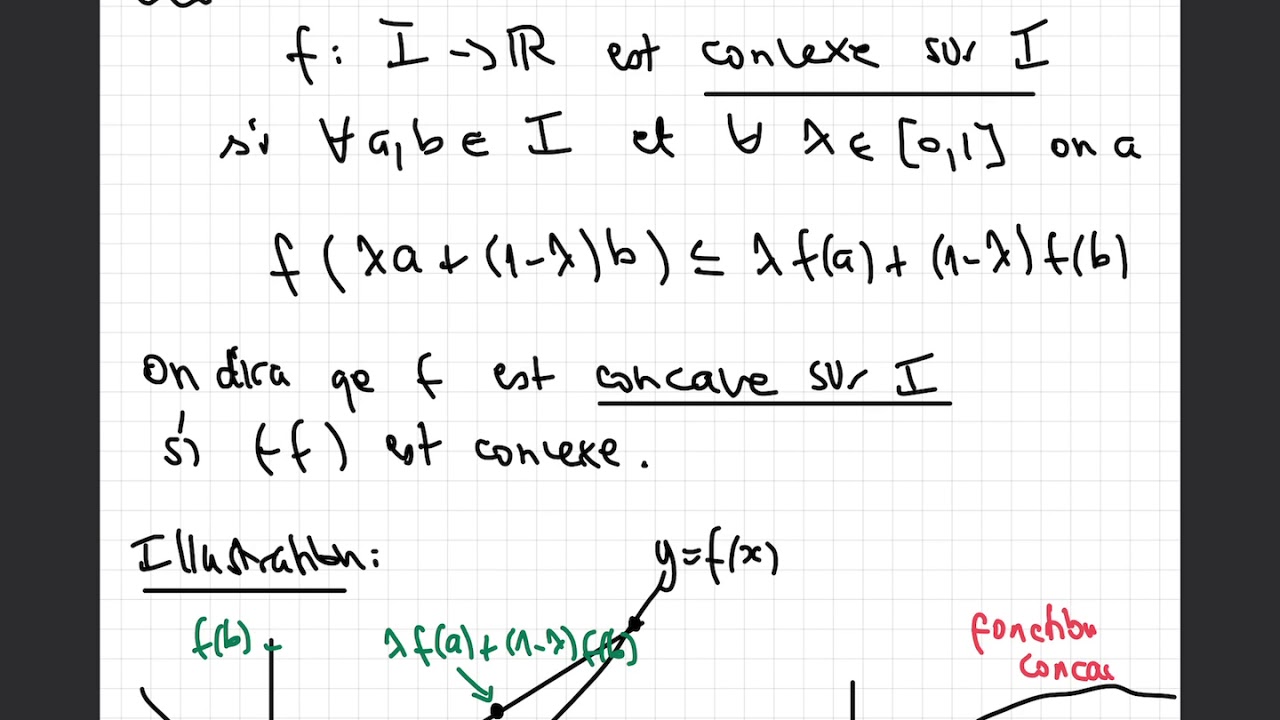 f: I → ℝ est convexe sur I
si ∀ a,b ∈ I et ∀ λ ∈ [0,1] on a
f(λa + (1-λ)b) ≤ λf(a) + (1-λ)f(b)
On dira qe f est concave sur I
si (-f) est convexe.
Illustration:
y=f(x)
f(b)
λf(a)+(1-λ)f(b)
fonction
concav